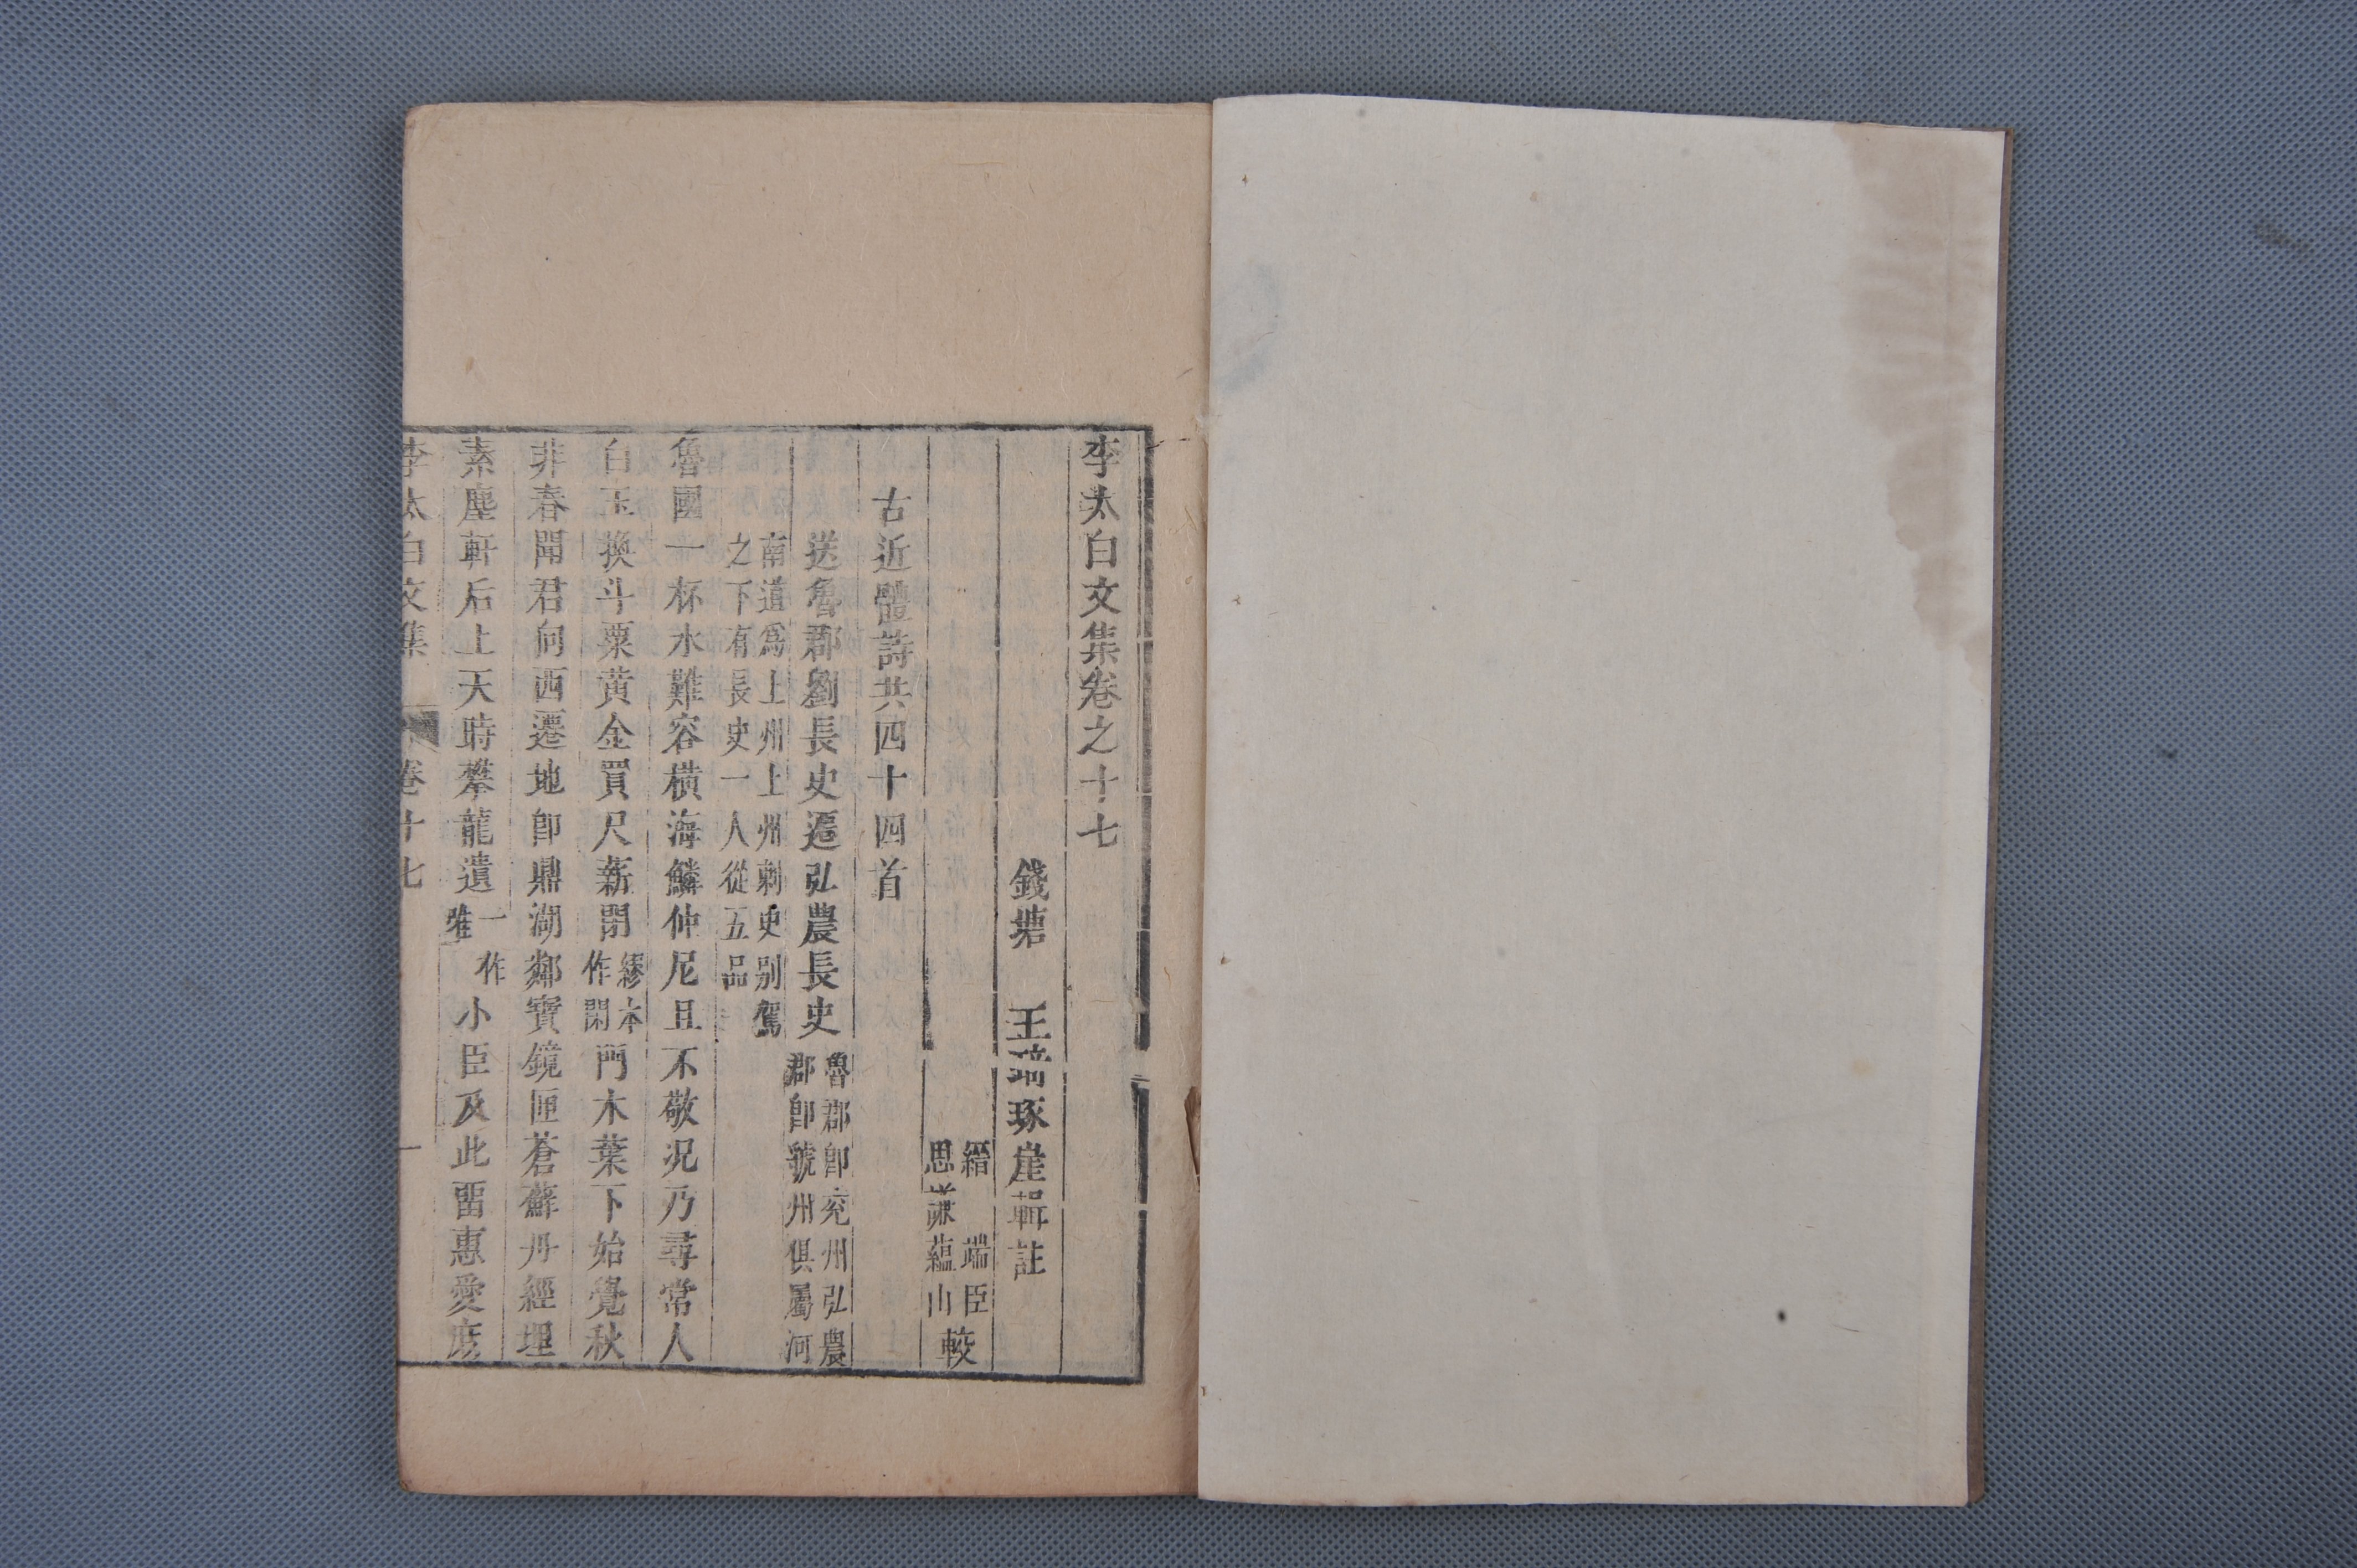 李太白文集卷之十七
錢塘 王琦琢崖輯註
縉 端臣
思謙蘊山 較
古近體詩共四十四首
送魯郡劉長史遷弘農長史
魯郡卽兗州弘農
郡卽虢州俱屬河
南道爲上州上州刺史别駕
之下有長史一人從五品
魯國一杯水難容橫海鱗仲尼且不敬況乃尋常人
白玉換斗粟黃金買尺薪閉
繆本
作閑
門木葉下始覺秋
非春聞君向西遷地卽鼎湖鄰寶鏡匣蒼蘚丹經埋
素塵軒后上天時攀龍遺
一作
雖
小臣及此留惠愛庶
李太白文集 卷十七 一